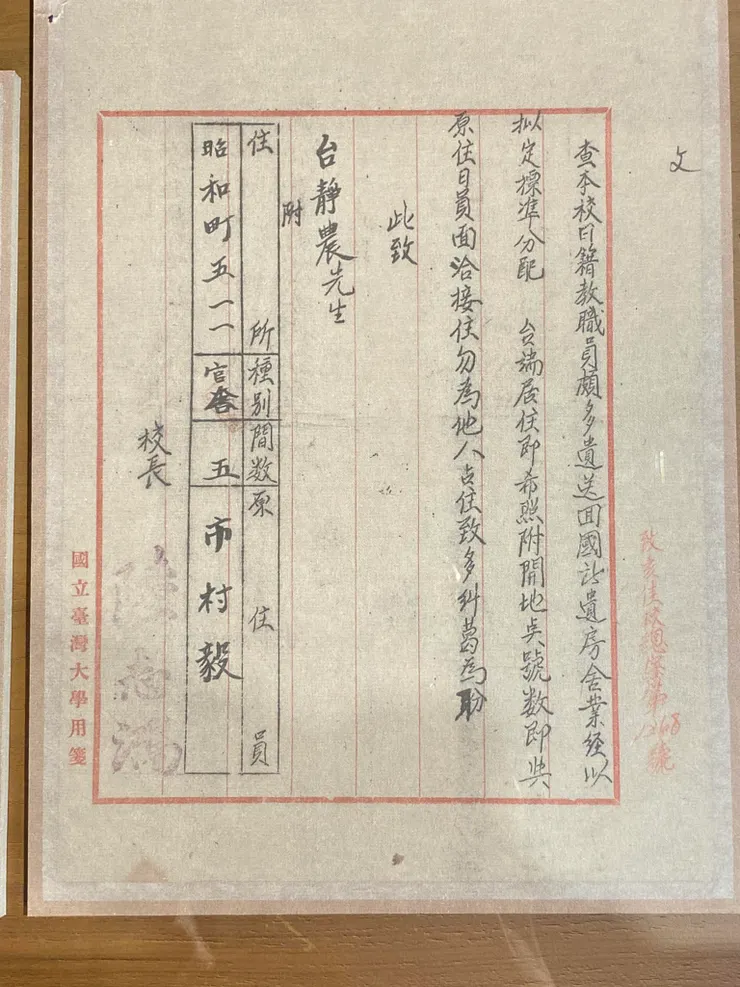 文
查本校日籍教職員頗多遺送回國所遺房舍業經以
拟定標準分配 台端居住即希照附開地点號数即與
原住日員面洽接住勿為他人占住致多糾葛為盼
此致
台靜農先生
附
住所 種别 間数 原住員
昭和町五一一 官舍 五 市村毅
校長
國立臺灣大學用箋